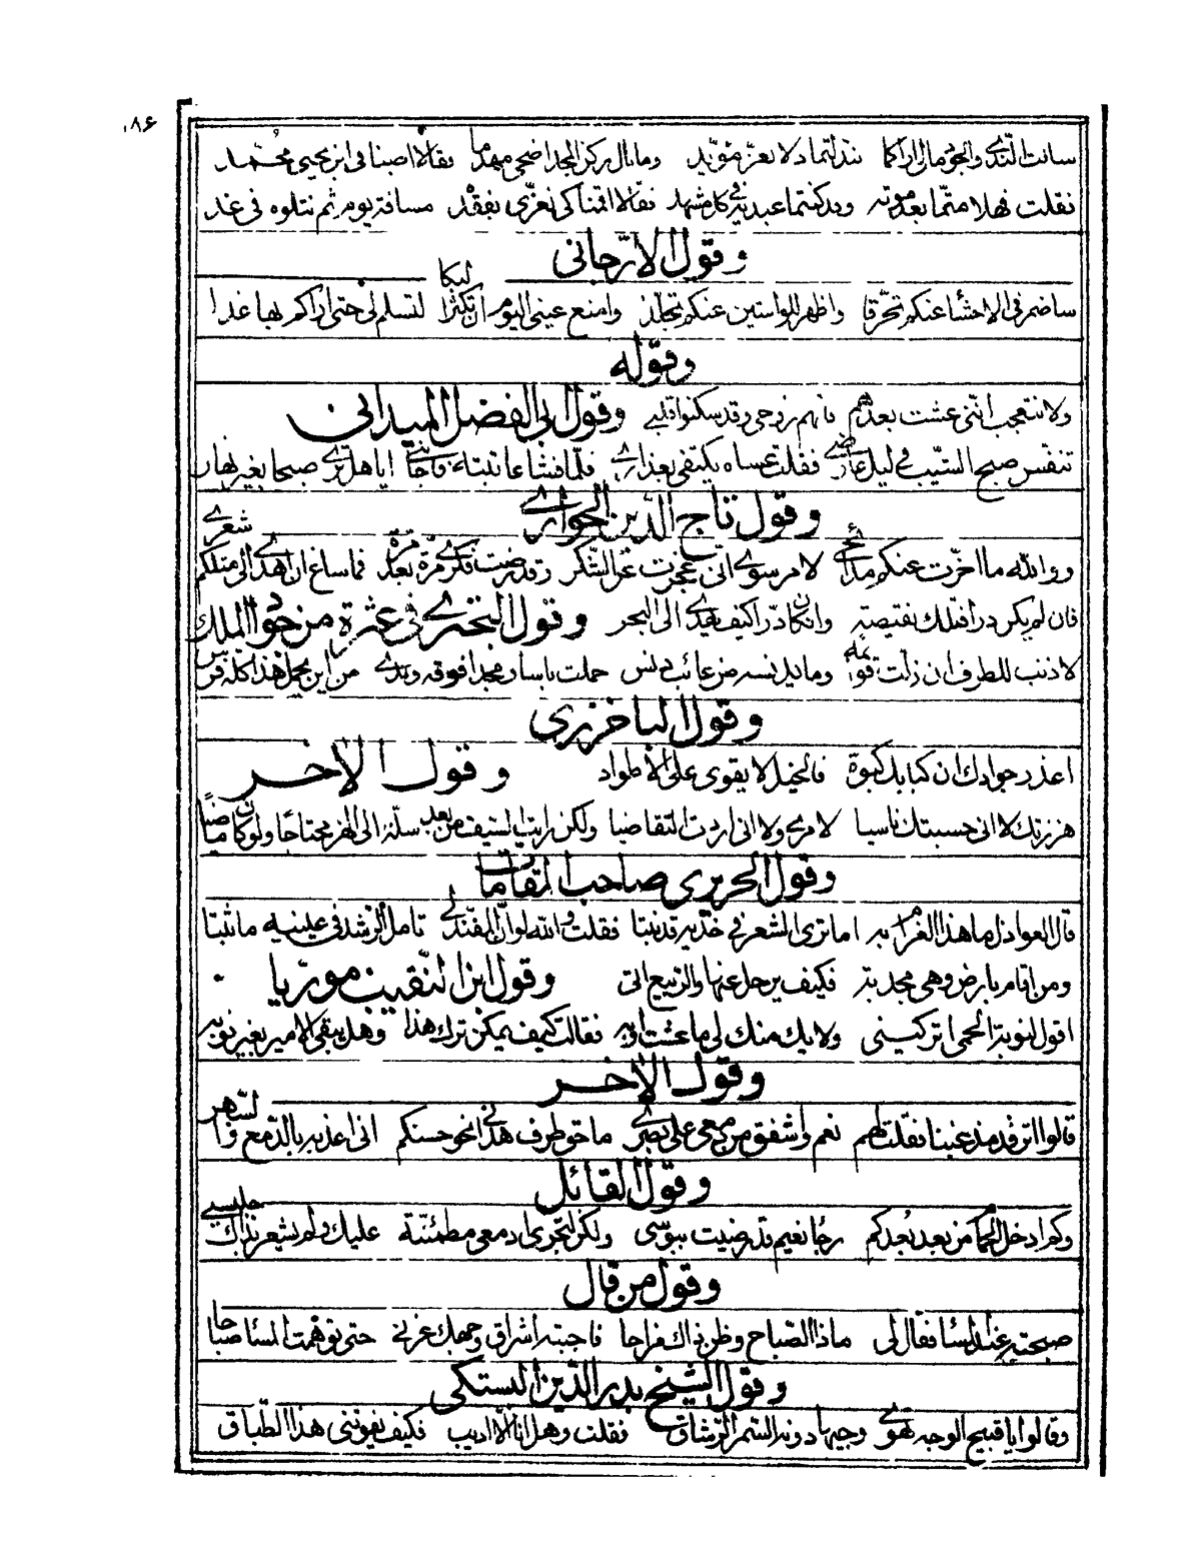 ١٨۶
سالت الندى والجود مالى اراكما تبدلتما ذلا بعز مؤبد وما بال ركن المجد اضحى مهدما فقالا اصبنا فى ابن يحيى محمد
فقلت فهلا متما بعد موته وقد كنتما عبديه فى كل مشهد فقالا اقمنا كى نعزى بفقده مسافة يوم ثم نتلوه فى غد
وقول الارجانى
ساضمر فى الاحشاء عنكم تحرقا واظهر للواشين عنكم تجلدا وامنع عينى اليوم ان تكثر البكا لتسلم لى حتى اراكم بها غدا
وقوله
ولا تتعجب اننى عشت بعدهم فانهم روحى وقد سكنوا قلبى وقول ابى الفضل الميدانى
تنفس صبح الشيب فى ليل عارضى فقلت عساه يكتفى بعذارى فلما فشا عاتبته فاجابنى ايا هل ترى صبحا بغير نهار
وقول تاج الدين الحوارى
ووالله ما اخرت عنكم مدائحى لامر سوى انى عجزت عن الشكر وقد رضت فكرى مرة بعد مرة فما ساغ ان اهدى الى مثلكم شعرى
فان لم يكن درا فتلك نقيصة وان كان درا كيف يهدى الى البحر وقول البحترى فى عثرة من جواد الملك
لا ذنب للطرف ان زلت قوائمه وما يدنسه من عائب دنس حملت باسا ومجدا فوقه وندى من اين يحمل هذا كله فرس
وقول الباخرزى
اعذر جوادك ان كبا بك كبوة فالخيل لا يقوى على الاطواد وقول الاخر
هززتك لا انى حسبتك ناسيا لامرى ولا انى اردت التقاضيا ولكن رايت السيف من بعد سله الى الهز محتاجا ولو كان ماضيا
وقول الحريرى صاحب المقامات
قال العواذل ما هذا الغرام به اما ترى الشعر فى خديه قد نبتا فقلت والله لو ان المفند لى تامل الرشد فى عينيه ما ثبتا
ومن اقام بارض وهى مجدبة فكيف يرحل عنها والربيع اتى وقول ابن النقيب موريا
اقول لنوبة الحمى اتركينى ولا يك منك لى ما عشت اوبه فقالت كيف يمكن ترك هذا وهل يبقى الامير بغير نوبه
وقول الاخر
قالوا اترقد مذ غبنا فقلت لهم نعم واشفق من دمعى على بصرى ما حق طرف هدانى نحو حسنكم انى اعذبه بالدمع والسهر
وقول القائل
وكم ادخل الحما من بعد بعدكم رجا نعيم قد رضيت ببوسى ولكن لتجرى ادمعى مطمئنة عليك ولم يشعر بذاك جليسى
وقول من قال
صبحته عند المسا فقال لى ماذا الصباح وظن ذاك مزاحا فاجبته اشراق وجهك غرنى حتى توهمت المسا صباحا
وقول الشيخ بدر الدين البستكى
وقالوا يا قبيح الوجه تهوى وجيها دونه السمر الرشاق فقلت وهل انا الا اديب فكيف يفوتنى هذا الطباق